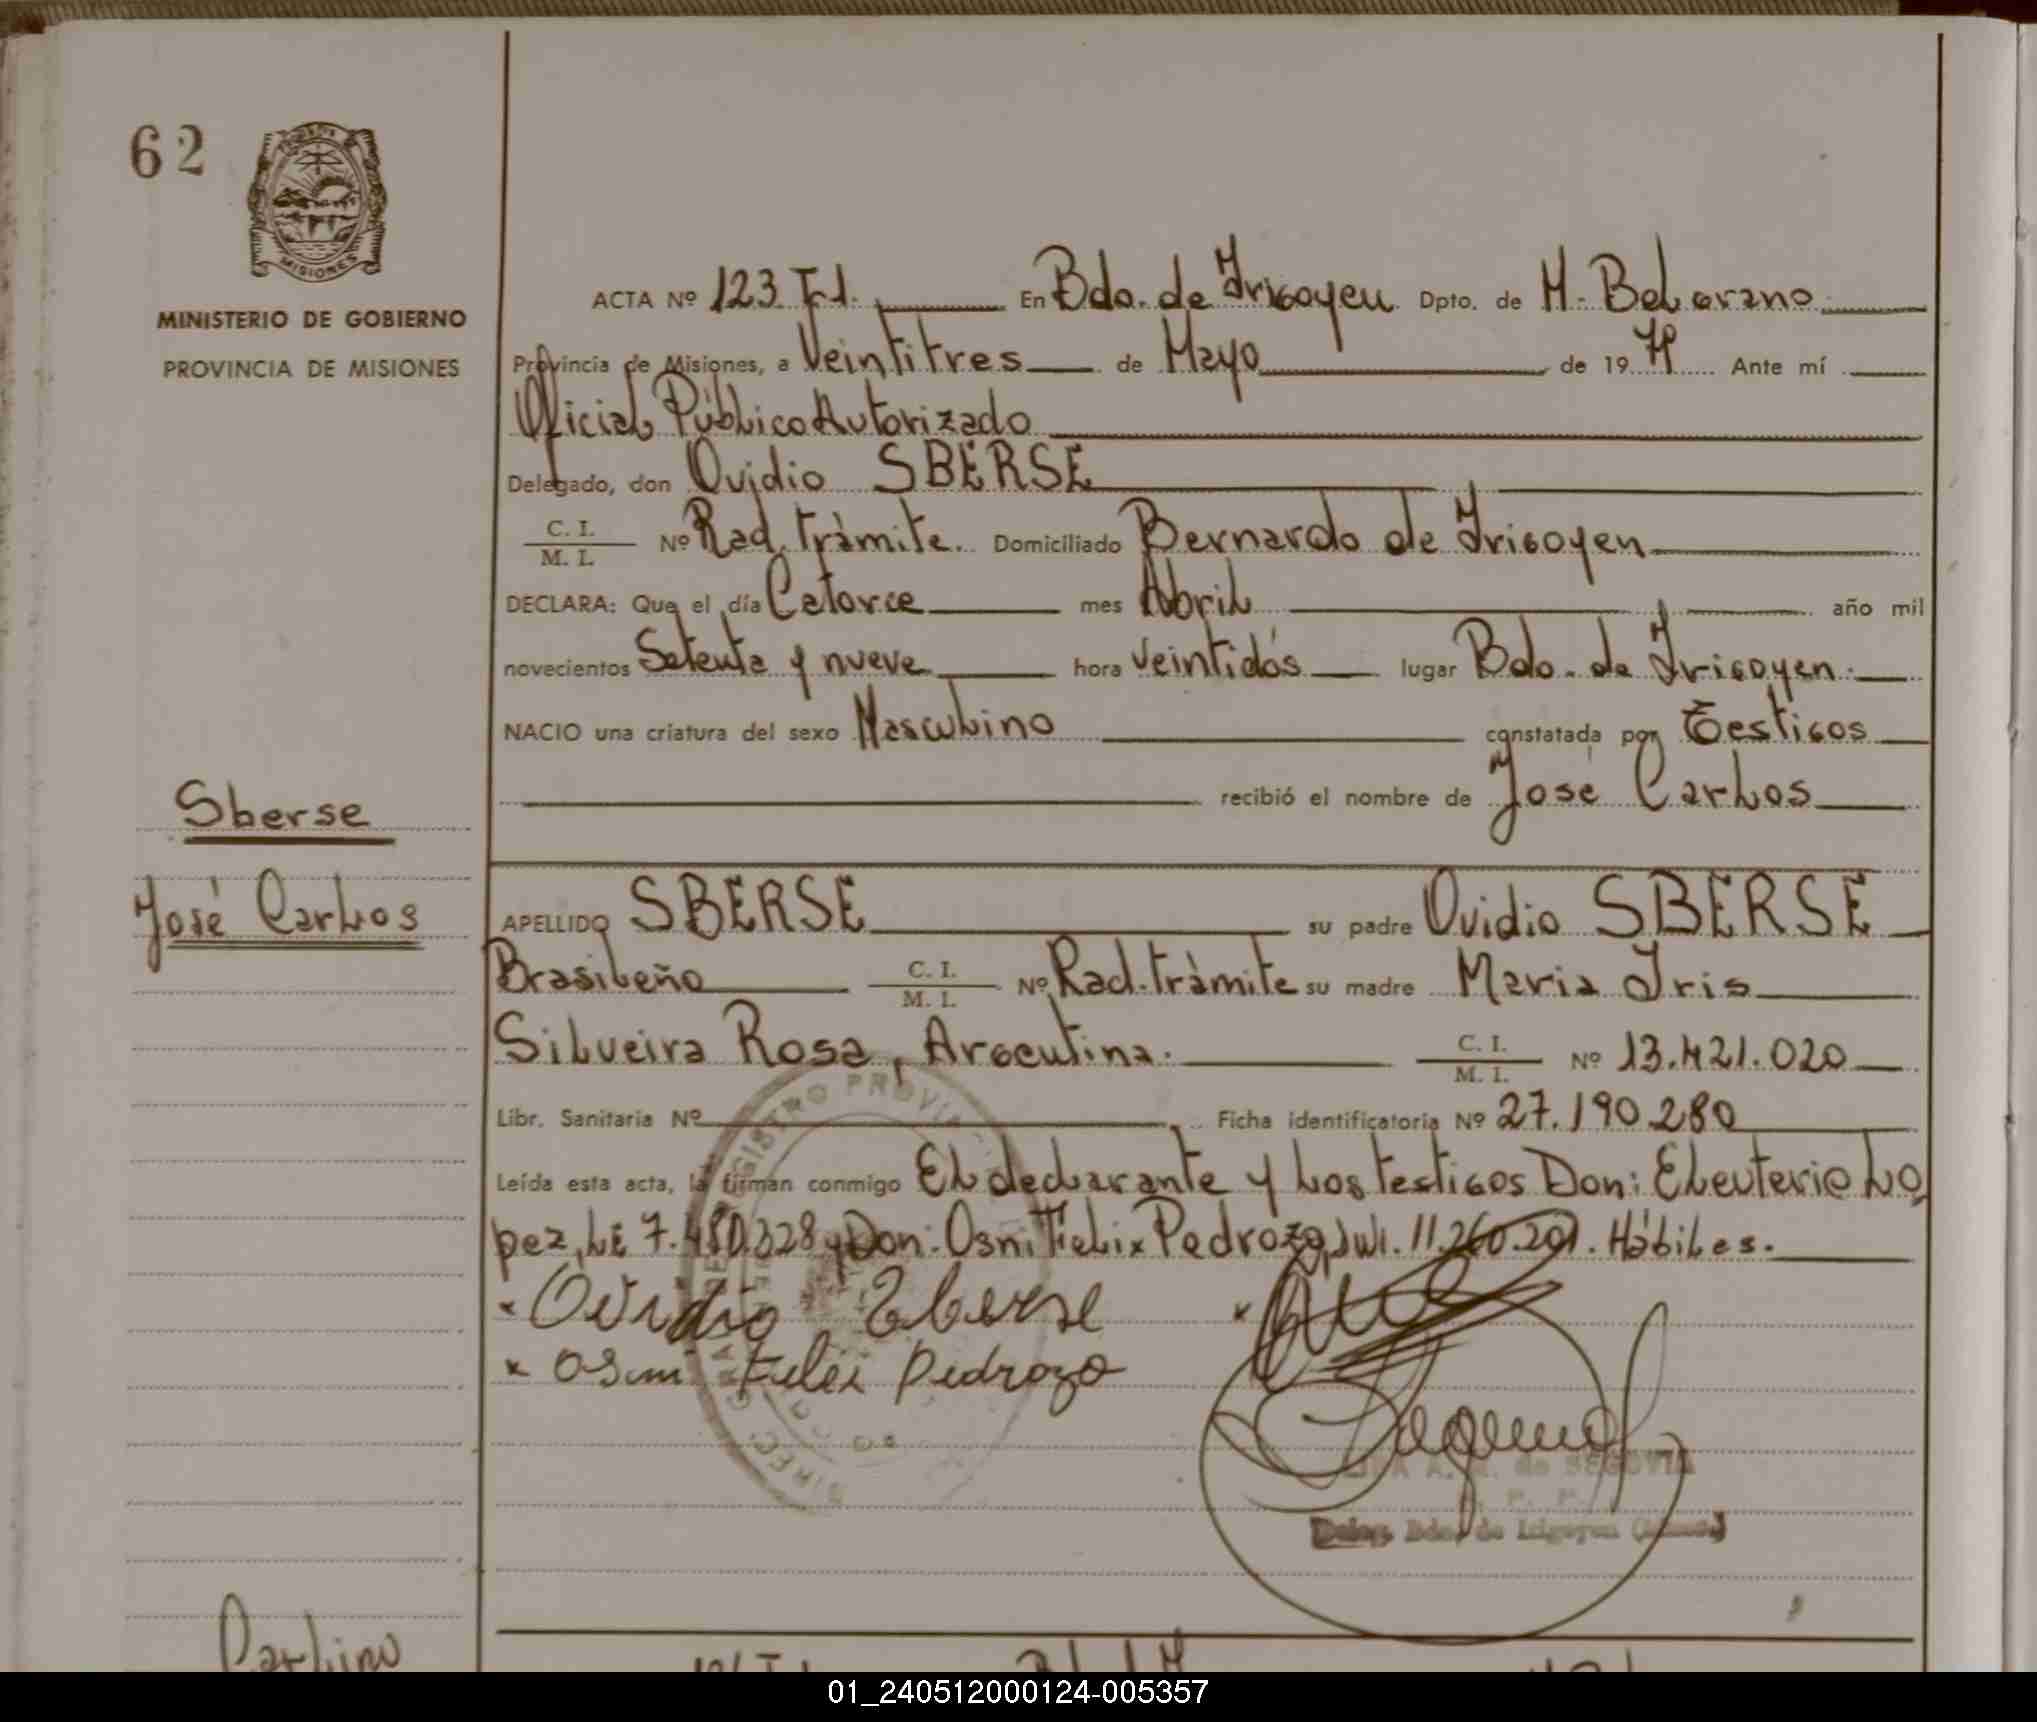 62
MISIONES
MINISTERIO DE GOBIERNO
PROVINCIA DE MISIONES
ACTA Nº 123 T I. En Bdo. de Irigoyen Dpto. de M. Belgrano
Provincia de Misiones, a Veintitres de Mayo de 19 79 Ante mí
Oficial Público Autorizado
Delegado, don Ovidio SBERSE
C. I.
M. I. Nº Rad. tràmite. Domiciliado Bernardo de Irigoyen
DECLARA: Que el día Catorce mes Abril año mil
novecientos Setenta y nueve hora veintidós lugar Bdo. de Irigoyen.
NACIO una criatura del sexo Masculino constatada por Testigos
recibió el nombre de José Carlos
Sberse
José Carlos
APELLIDO SBERSE su padre Ovidio SBERSE
Brasileño C. I. M. I. Nº Rad. tràmite su madre Maria Iris
Silveira Rosa, Argentina. C. I. M. I. Nº 13.421.020
Libr. Sanitaria Nº Ficha identificatoria Nº 27.190.280
Leída esta acta, la firman conmigo El declarante y los testigos Don: Eleuterio Lo
pez, LE 7.480.328 y Don: Osni Felix Pedrozo, 11.260.201. Hábiles.
Ovidio Sberse
Osni Felix Pedrozo
A. M. de SEGOVIA
Deleg. Bdo. de Irigoyen
Carlino
01_240512000124-005357